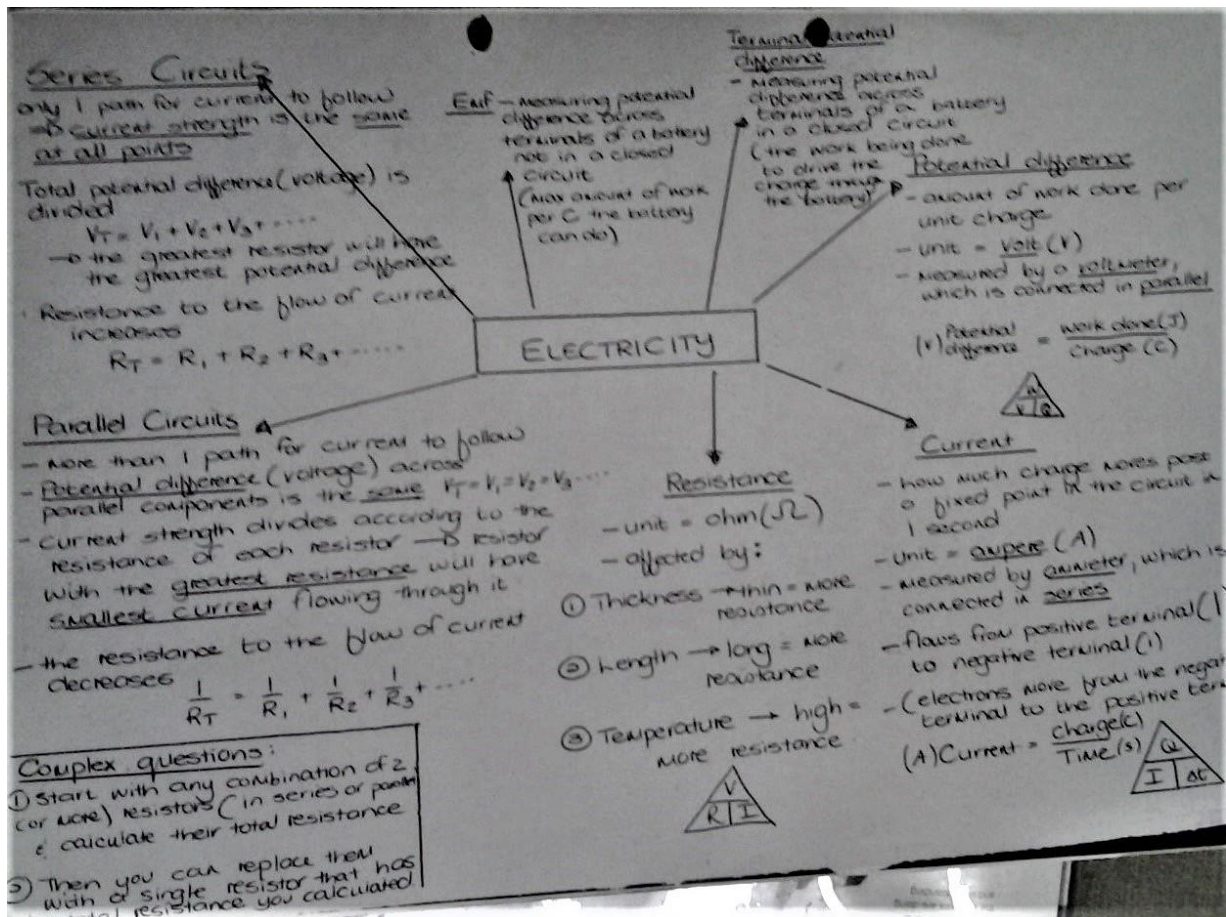 Series Circuits
only 1 path for current to follow
→ current strength is the same
at all points
Total potential difference (voltage) is
divided
VT = V1 + V2 + V3 + .....
→ the greatest resistor will have
the greatest potential difference
Resistance to the flow of current
increases
RT = R1 + R2 + R3 + .....
Emf - measuring potential
difference across
terminals of a battery
not in a closed
circuit
(max amount of work
per C the battery
can do)
Terminal potential
difference
- measuring potential
difference across
terminals of a battery
in a closed circuit
(the work being done
to drive the
charge
the battery)
Potential difference
- amount of work done per
unit charge
- unit = volt (V)
- measured by a voltmeter,
which is connected in parallel
(V) Potential difference = work done (J) / charge (C)
W
V Q
ELECTRICITY
Parallel Circuits
- more than 1 path for current to follow
- Potential difference (voltage) across
parallel components is the same VT = V1 = V2 = V3 ....
- current strength divides according to the
resistance of each resistor → resistor
with the greatest resistance will have
smallest current flowing through it
- the resistance to the flow of current
decreases
1/RT = 1/R1 + 1/R2 + 1/R3 + .....
Complex questions:
① Start with any combination of 2
(or more) resistors (in series or parallel
& calculate their total resistance
② Then you can replace them
with a single resistor that has
total resistance you calculated
Resistance
- unit = ohm (Ω)
- affected by:
① Thickness → thin = more
resistance
② Length → long = more
resistance
③ Temperature → high =
more resistance
V
R I
Current
- how much charge moves past
a fixed point in the circuit in
1 second
- unit = ampere (A)
- measured by ammeter, which is
connected in series
- flows from positive terminal (|
to negative terminal (ı)
- (electrons move from the negat
terminal to the positive term
(A) Current = charge (C) / Time (s)
Q
I Δt